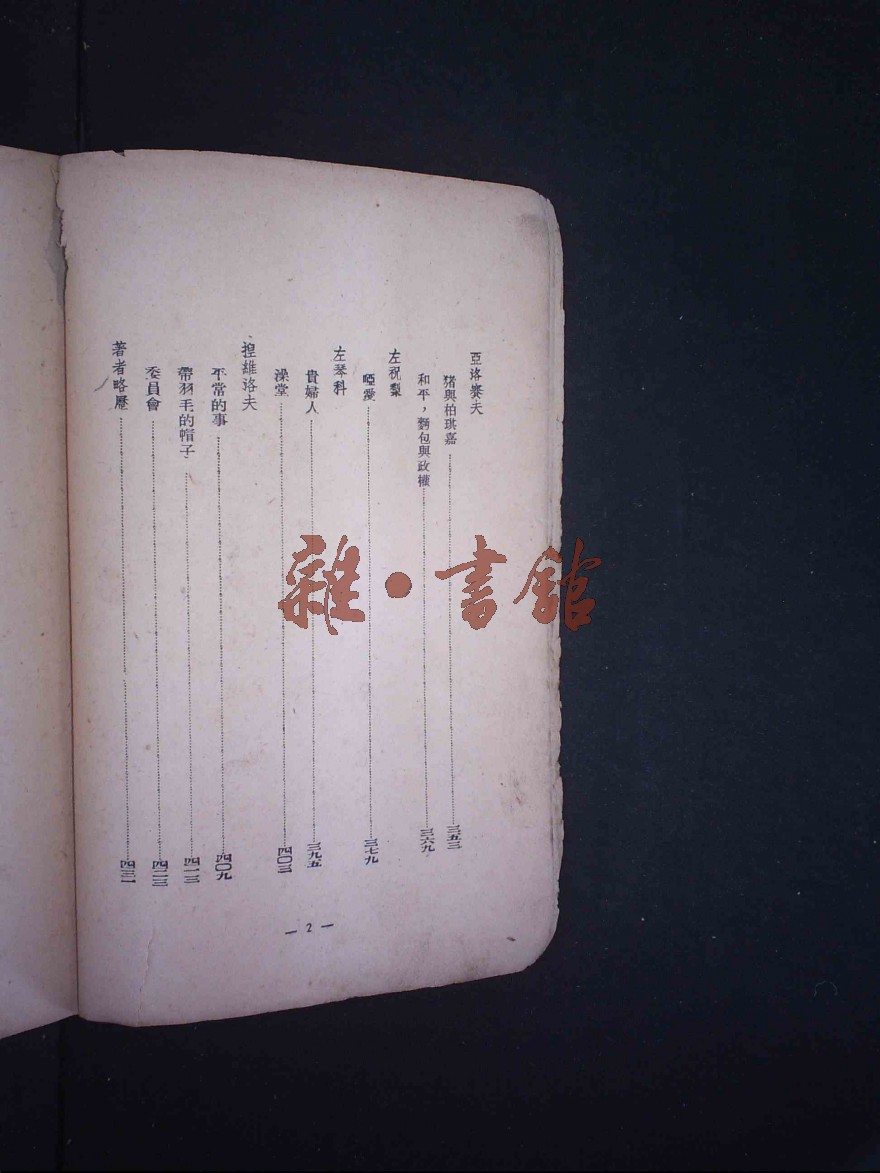 亞洛賽夫
猪與柏琪嘉……三五三
和平，麵包與政權……三六九
左祝梨
啞愛……三七九
左琴科
貴婦人……三九五
澡堂……四〇三
捏維洛夫
平常的事……四〇九
帶羽毛的帽子……四一三
委員會……四二三
著者略歷……四三一
— 2 —
雜·書館